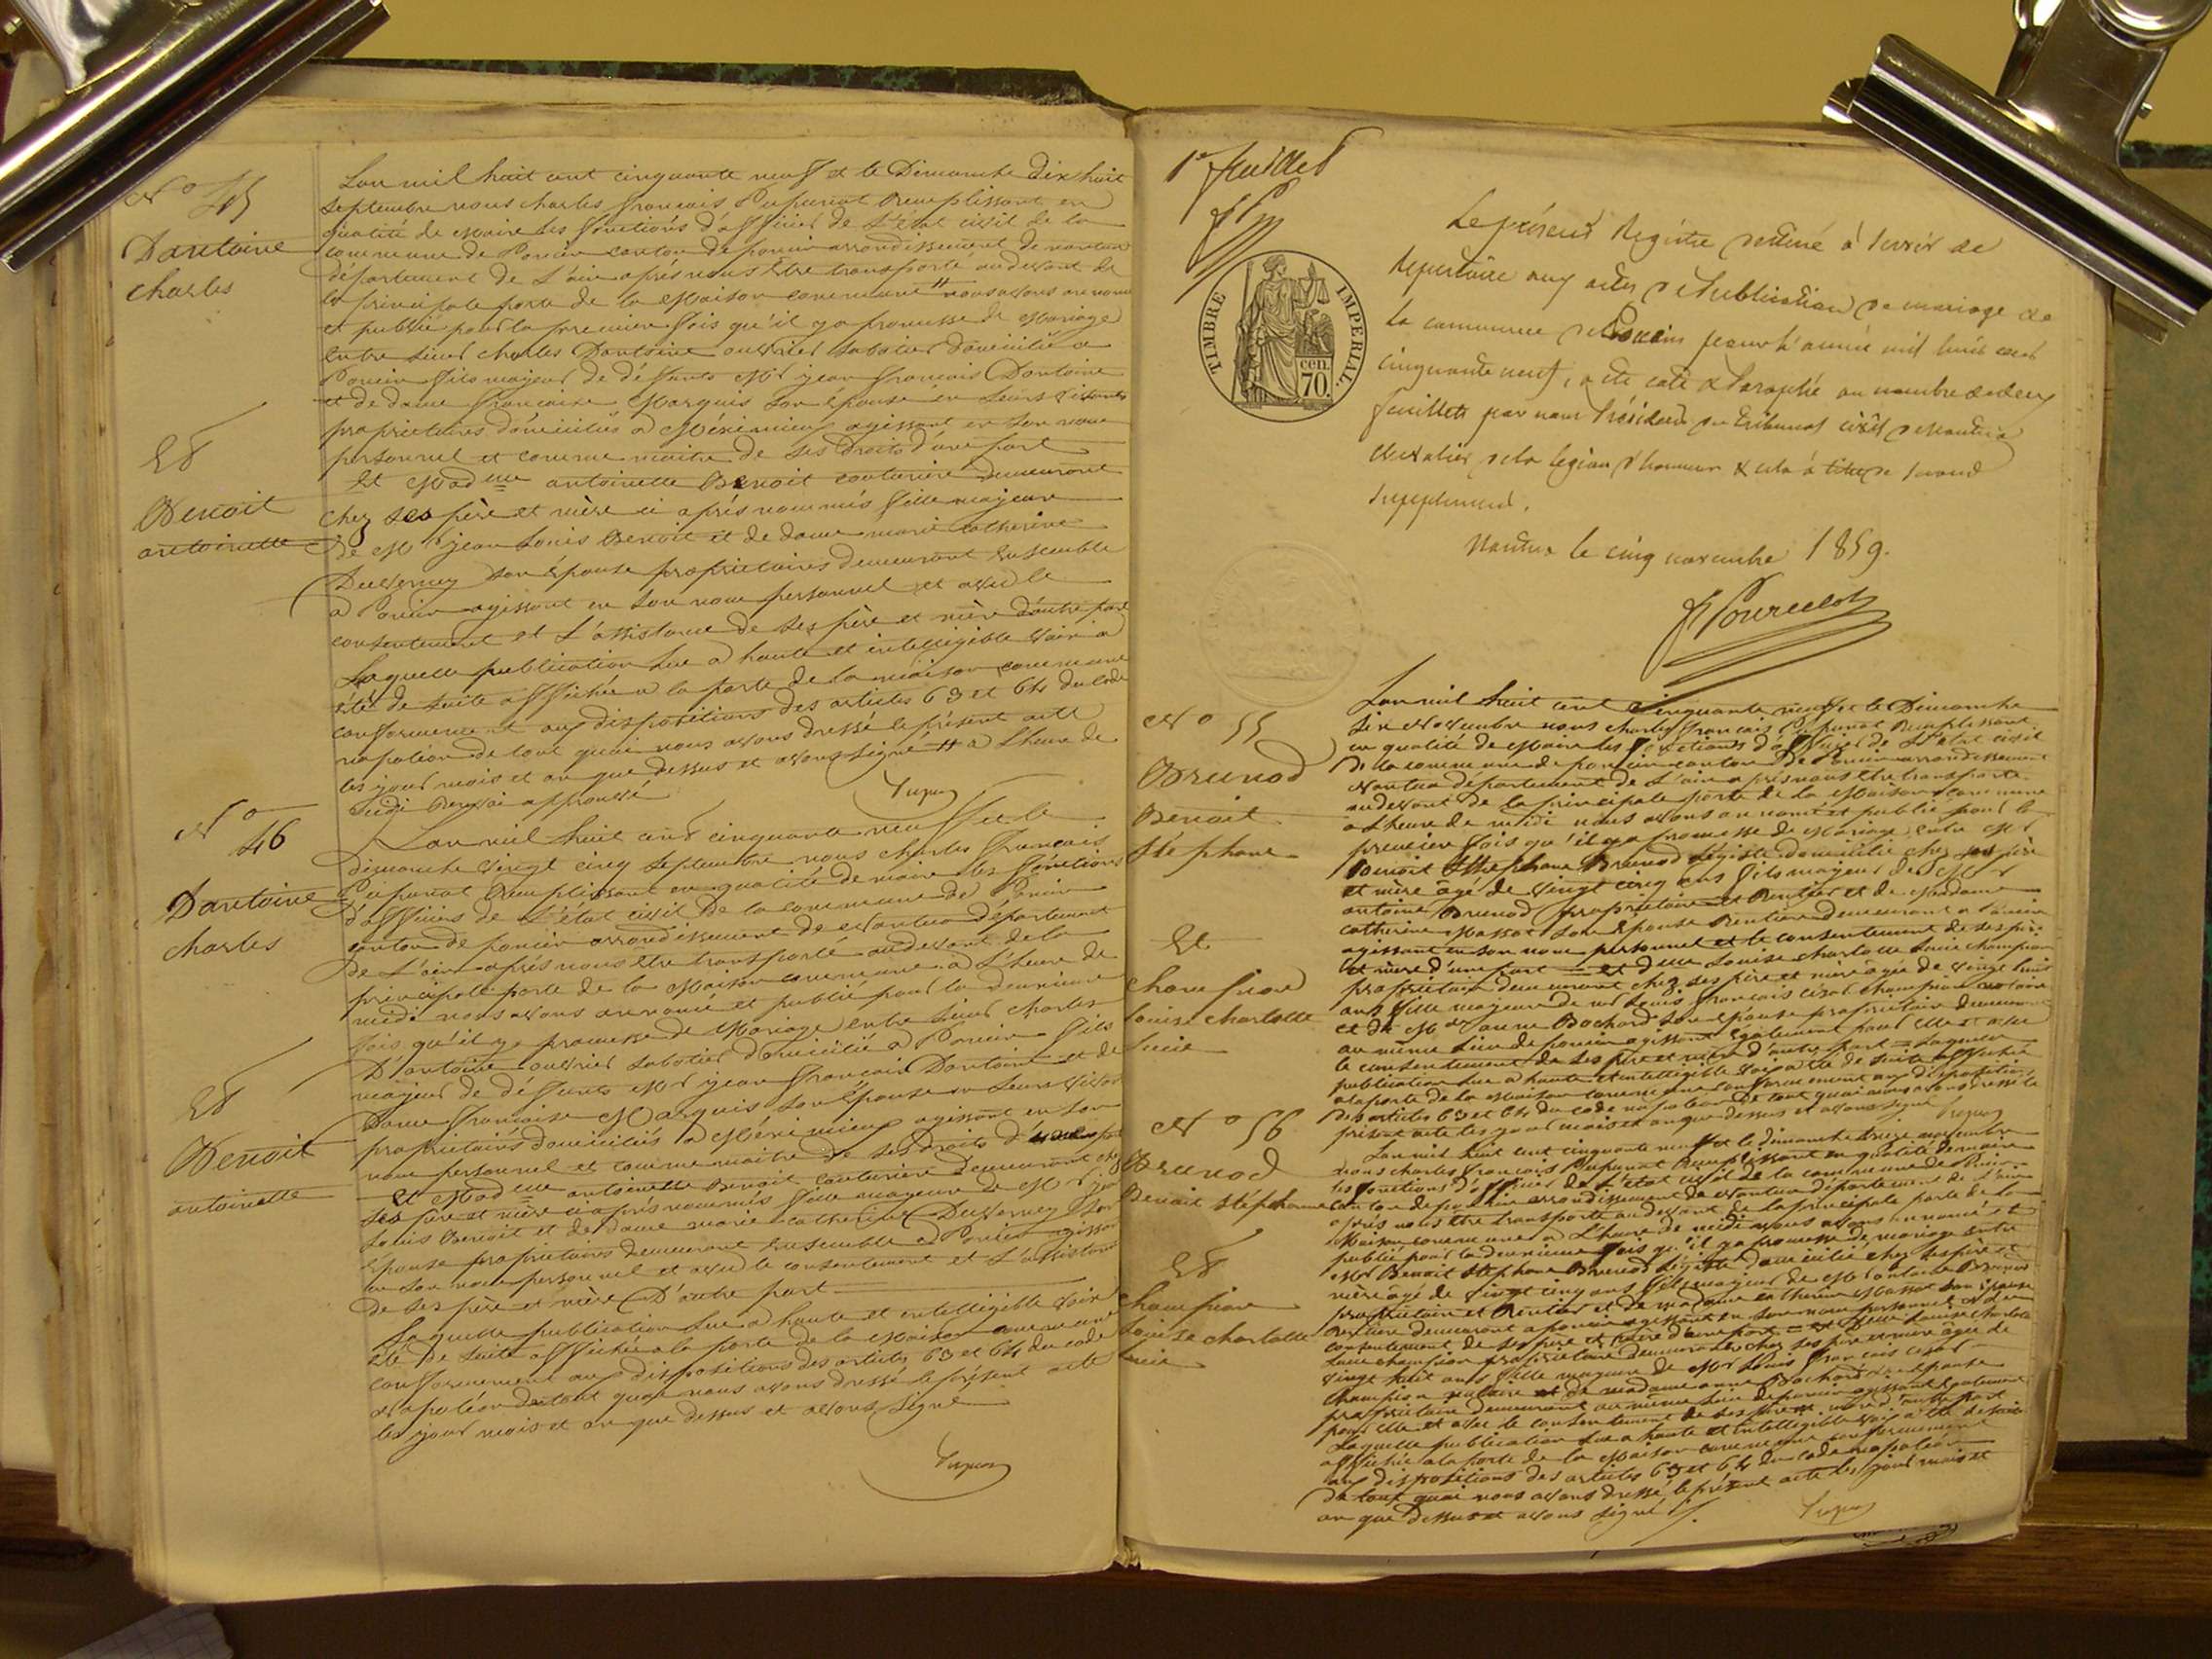 N° 45
Dantoine
charles
Et
Benoit
antoinette
Lan mil huit cent cinquante neuf et le Dimanche dix huit
septembre nous charles francois Pupunat Remplissant en
qualité de Maire les fonctions d'officier de L'état civil de la
commune de Poncin canton de poncin arrondissement de nantua
département de L'ain après nous Etre transporté au devant de
la principale porte de la Maison commune # nous avons annoncé
et publié pour la première fois qu'il y a promesse de Mariage
Entre sieur charles Dantoine ouvrier sabotier domicilié a
Poncin fils majeur de défunts Mr jean francois Dantoine
et de dame francoise Marquis son épouse en leurs vivants
propriétaires domiciliés a Méximieux agissant en son nom
personnel et comme maitre de ses droits d'une part
Et Mad elle antoinette Benoit couturière demeurant
chez ses père et mère ci après nommés fille majeure
de Mr jean Louis Benoit et de dame marie catherine
Duverney son épouse propriétaires demeurant Ensemble
a Poncin agissant en son nom personnel et avec le
consentement et L'assistance de ses père et mère d'autre part
Laquelle publication lue a haute et intelligible voix a
été de suite affichée a la porte de la maison commune
conformément aux dispositions des articles 63 et 64 du code
napoléon de tout quoi nous avons dressé le présent acte
les jour mois et an que dessus et avons signé # a L'heure de
midi Renvoi approuvé
N° 46
Dantoine
charles
Et
Benoit
antoinette
Lan mil huit cent cinquante neuf et le
dimanche vingt cinq septembre nous charles francois
Pupunat Remplissant en qualité de maire les fonctions
d'officier de L'état civil de la commune de Poncin
canton de poncin arrondissement de Nantua département
de L'ain après nous Etre transporté au devant de la
principale porte de la Maison commune a L'heure de
midi nous avons annoncé et publié pour la deuxième
fois qu'il y a promesse de Mariage entre sieur charles
D'antoine ouvrier sabotier domicilié a Poncin fils
majeur de défunts Mr jean francois Dantoine et de
Dame francoise Marquis son Epouse en leurs vivants
propriétaires domiciliés a Méximieux agissant en son
nom personnel et comme maitre de ses droits d'une part
Et Mad elle antoinette Benoit couturière demeurant chez
ses père et mère ci après nommés fille majeure de Mr jean
Louis Benoit et de Dame marie catherine Duverney son
épouse propriétaires demeurant Ensemble a Poncin agissant
en son nom personnel et avec le consentement et L'assistance
de ses père et mère D'autre part
Laquelle publication lue a haute et intelligible voix
été de suite affichée a la porte de la Maison commune
conformément aux dispositions des articles 63 et 64 du code
Napoléon de tout quoi nous avons dressé le présent acte
les jour mois et an que dessus et avons signé
1er feuillet
TIMBRE IMPERIAL.
cen.
70.
Le présent Registre destiné à servir de
Repertoire aux actes de Publication de mariage de
la commune de Poncin pour l'année mil huit cent
cinquante neuf, a été coté & Paraphé au nombre de deux
feuillets par nous Président du tribunal civil de Nantua
chevalier de la legion d'honneur & cela à titre de second
supplement.
Nantua le cinq novembre 1859.
N° 55
Brunod
Benoit
Stéphane
Et
Champion
Louise charlotte
Lucie
Lan mil huit cent cinquante neuf et le Dimanche
six Novembre nous charles francois Pupunat Remplissant
en qualité de Maire les fonctions d'officier de L'état civil
De la commune de poncin canton de Poncin arrondissement
Nantua département de L'ain après nous Etre transporté
au devant de la principale porte de la Maison commune
a L'heure de midi nous avons annoncé et publié pour la
première fois qu'il y a promesse de Mariage entre Mr
Benoit Stéphane Brunod légiste domicilié chez ses père
et mère âgé de vingt cinq ans fils majeur de Mr
antoine Brunod propriétaire et Rentier et de Madame
catherine Massot son Epouse Rentière demeurant a Poncin
agissant en son nom personnel et le consentement de ses père
et mère d'une part et Delle Louise charlotte Lucie champion
propriétaire demeurant chez ses père et mère âgée de vingt huit
ans fille majeure de mr Louis francois cézar Champion notaire
et de Mde anne Bochard son épouse propriétaire demeurant
au même lieu de poncin agissant également pour elle et avec
le consentement de ses père et mère d'autre part Laquelle
publication lue a haute et intelligible voix a été de suite affichée
a la porte de la Maison commune conformément aux dispositions
des articles 63 et 64 du code napoléon de tout quoi nous avons dressé le
présent acte les jour mois et an que dessus et avons signé
N° 56
Brunod
Benoit Stéphane
Et
Champion
Louise charlotte
Lucie
Lan mil huit cent cinquante neuf et le dimanche treize novembre
nous charles francois Pupunat Remplissant en qualité de maire
les fonctions d'officier de L'état civil de la commune de Poncin
canton de poncin arrondissement de Nantua département de L'ain
après nous Etre transporté au devant de la principale porte de la
Maison commune a L'heure de midi nous avons annoncé et
publié pour la deuxième fois qu'il y a promesse de mariage entre
Mr Benoit Stéphane Brunod légiste domicilié chez ses père et
mère âgé de vingt cinq ans fils majeur de Mr antoine Brunod
propriétaire et Rentier et de madame catherine Massot son épouse
Rentière demeurant a poncin agissant en son nom personnel et du
consentement de ses père et mère d'une part et Delle Louise charlotte
Lucie champion propriétaire demeurant chez ses père et mère âgée de
vingt huit ans fille majeure de Mr Louis francois cézar
champion notaire et de madame anne Bochard son épouse
propriétaire demeurant au même lieu de poncin agissant également
pour elle et avec le consentement de ses père et mère d'autre part
Laquelle publication lue a haute et intelligible voix a été de suite
affichée a la porte de la Maison commune conformément
aux dispositions des articles 63 et 64 du code napoléon
de tout quoi nous avons dressé le présent acte les jour mois et
an que dessus et avons signé